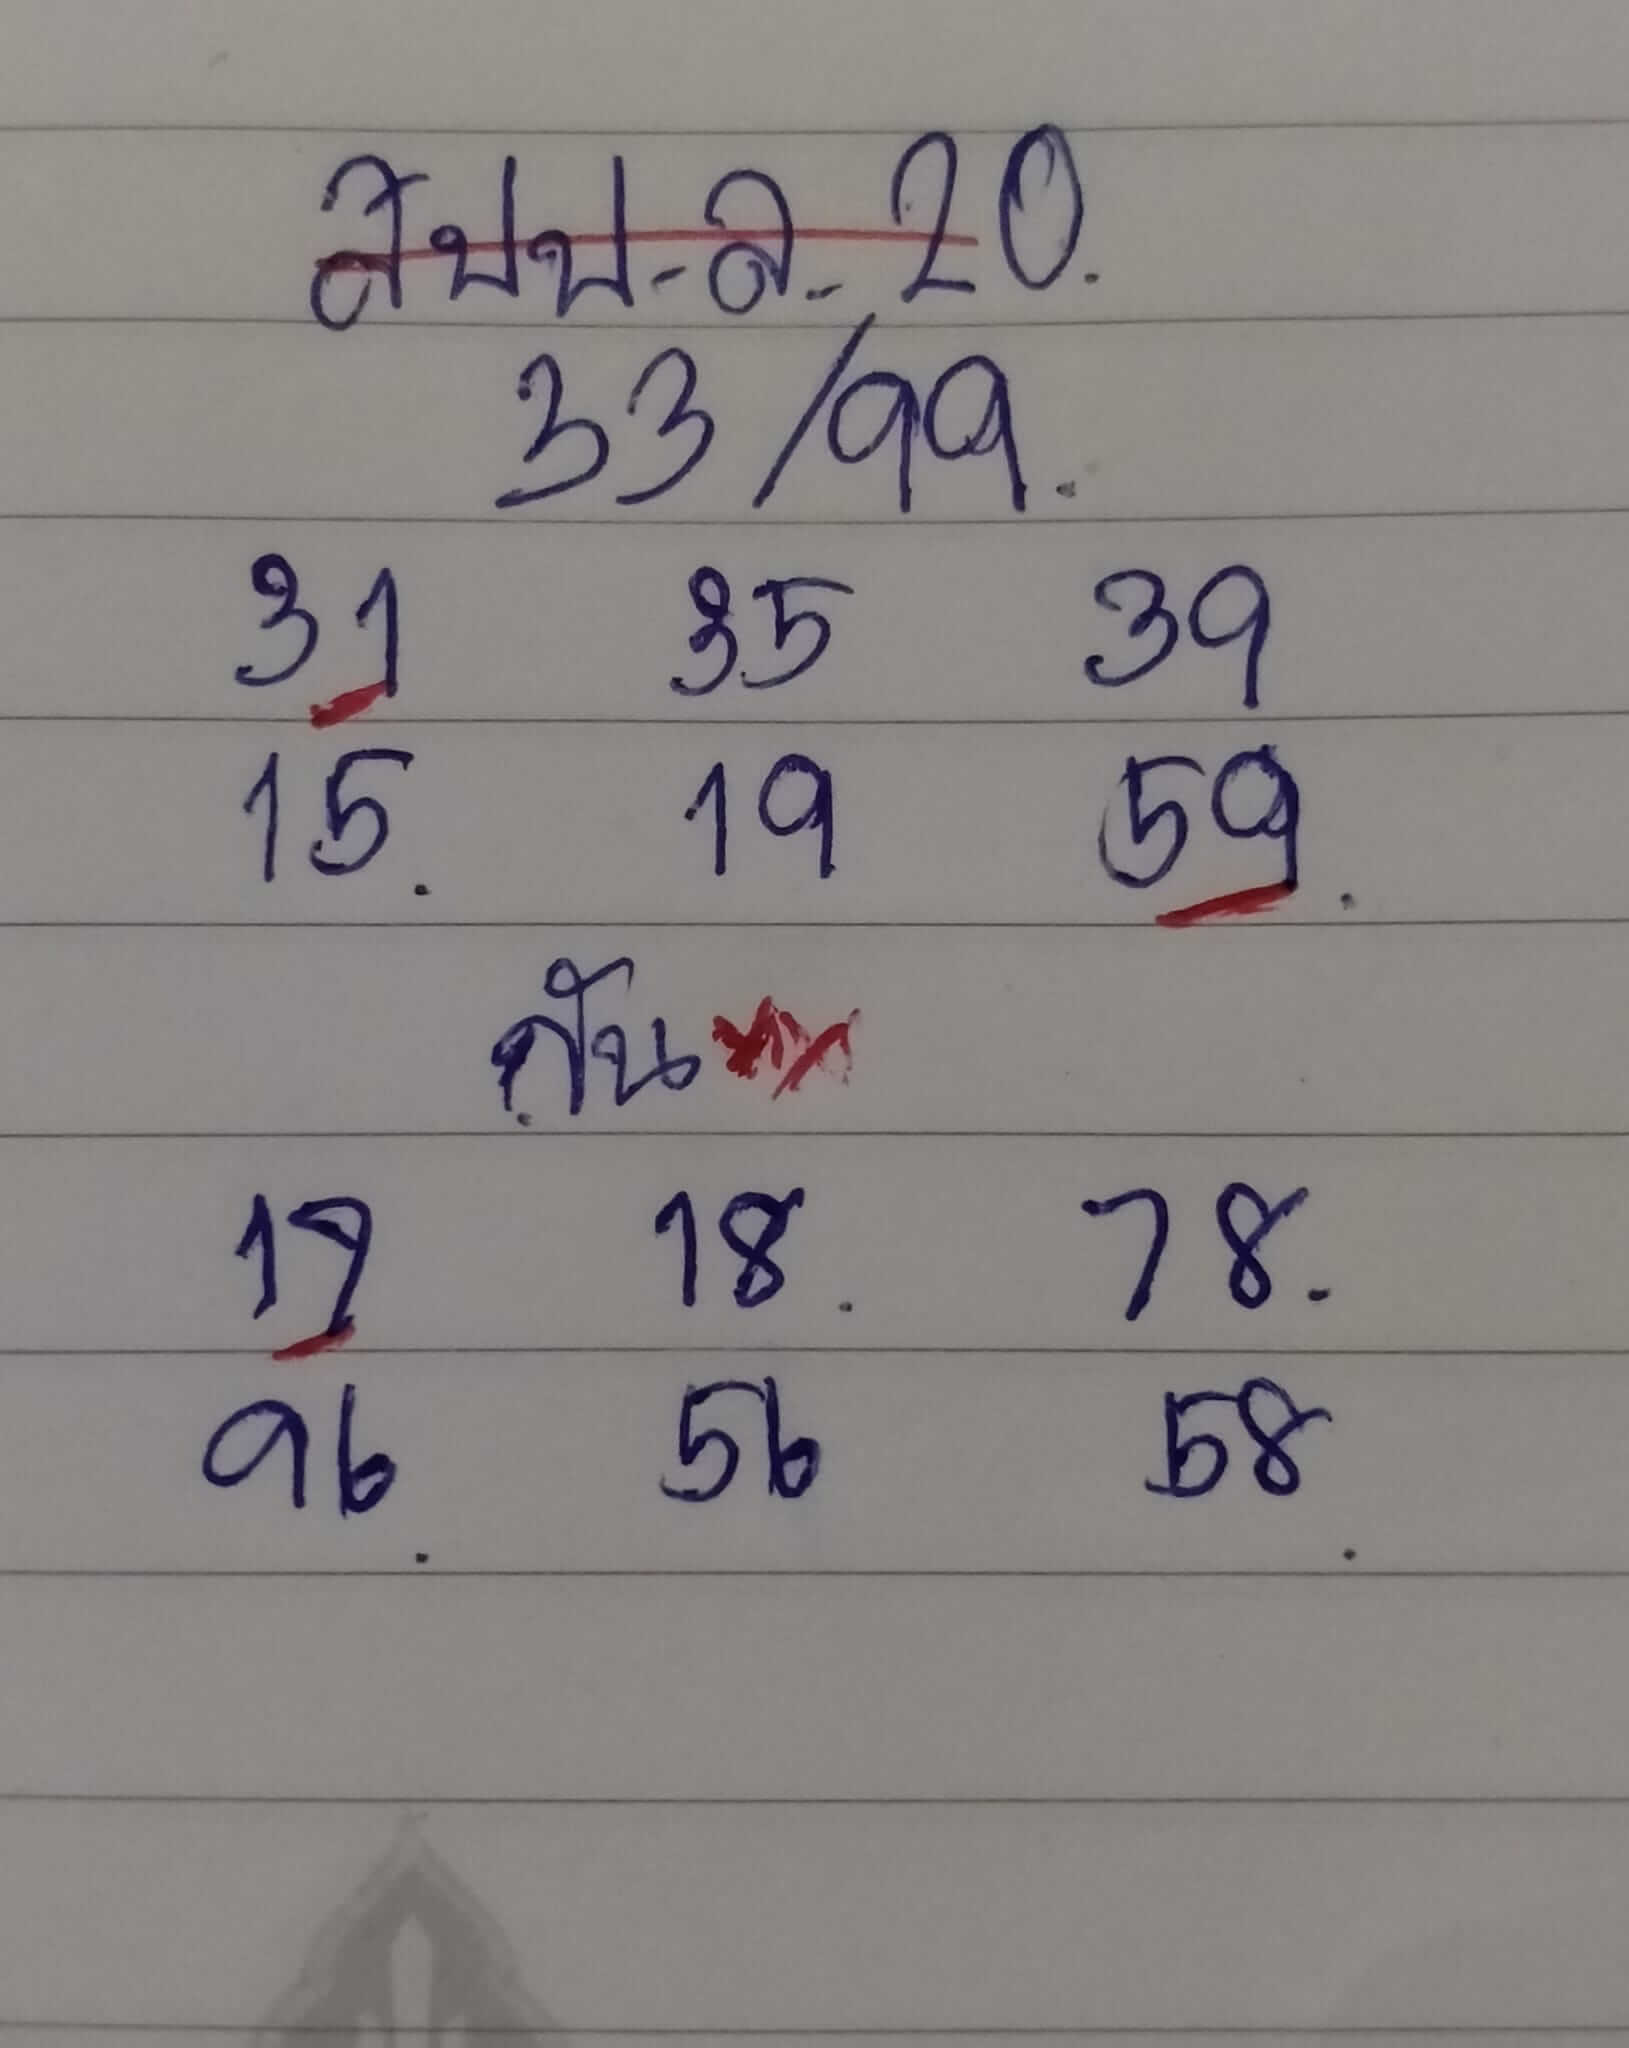 สปป.ล. 20.
33/99.
31 35 39
15. 19 59.
กัน
17 18. 78.
96. 56 58.